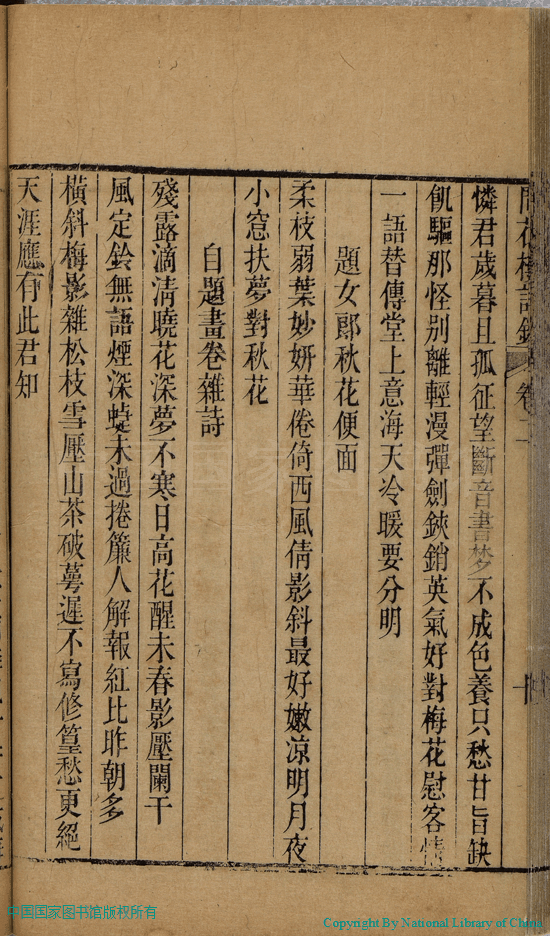 花樓詩鈔 卷二 十
憐君歲暮且孤征望斷音書夢不成色養只愁甘旨缺
飢驅那怪别離輕漫彈劍鋏銷英氣好對梅花慰客情
一語替傳堂上意海天冷暖要分明
題女郎秋花便面
柔枝弱葉妙妍華倦倚西風倩影斜最好嫩涼明月夜
小窓扶夢對秋花
自題畫卷雜詩
殘露滴清曉花深夢不寒日高花醒未春影壓闌干
風定鈴無語煙深蜨未過捲簾人解報紅比昨朝多
橫斜梅影雜松枝雪壓山茶破萼遲不寫修篁愁更絕
天涯應有此君知
中国国家图书馆版权所有
Copyright By National Library of China